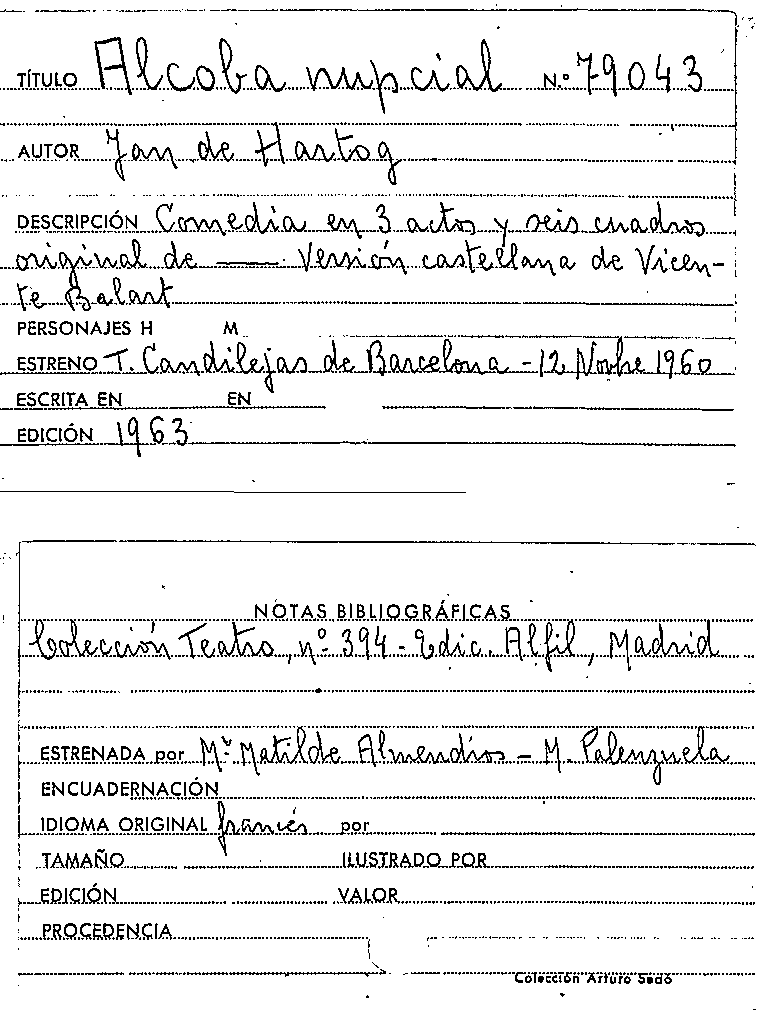 TÍTULO Alcoba nupcial N.º 79043
AUTOR Jan de Hartog
DESCRIPCIÓN Comedia en 3 actos y seis cuadros
original de —— Versión castellana de Vicen-
te Balart
PERSONAJES H M
ESTRENO T. Candilejas de Barcelona - 12 Novbre 1960
ESCRITA EN EN
EDICIÓN 1963
NOTAS BIBLIOGRÁFICAS
Colección Teatro, nº 394 - Edic. Alfil, Madrid
ESTRENADA por Mª Matilde Almendros - M. Palenzuela
ENCUADERNACIÓN
IDIOMA ORIGINAL francés por
TAMAÑO ILUSTRADO POR
EDICIÓN VALOR
PROCEDENCIA
Colección Arturo Sedó